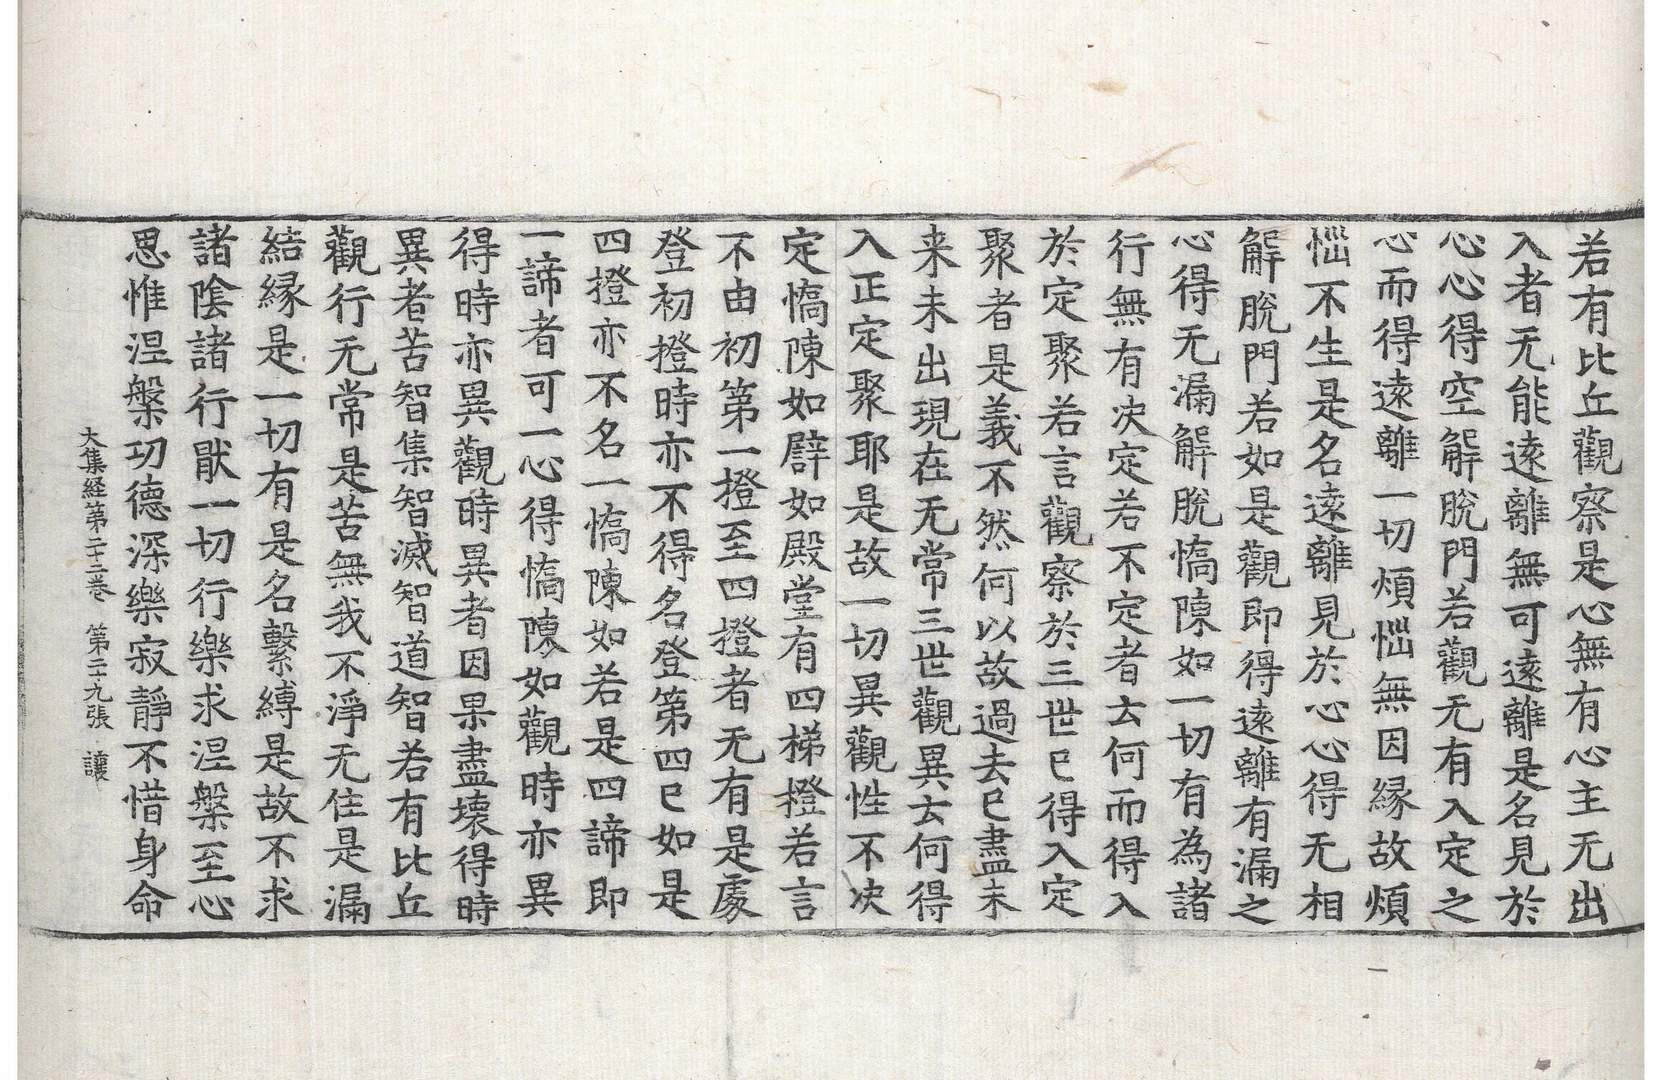 若有比丘觀察是心無有心主无出
入者无能遠離無可遠離是名見於
心心得空解脫門若觀无有入定之
心而得遠離一切煩惱無因緣故煩
惱不生是名遠離見於心心得无相
解脫門若如是觀即得遠離有漏之
心得无漏解脫憍陳如一切有為諸
行無有决定若不定者去何而得入
於定聚若言觀察於三世已得入定
聚者是義不然何以故過去已盡未
来未出現在无常三世觀異去何得
入正定聚耶是故一切異觀性不决
定憍陳如辟如殿堂有四梯橙若言
不由初第一橙至四橙者无有是處
登初橙時亦不得名登第四已如是
四橙亦不名一憍陳如若是四諦即
一諦者可一心得憍陳如觀時亦異
得時亦異觀時異者因果盡壞得時
異者苦智集智滅智道智若有比丘
觀行无常是苦無我不淨无住是漏
結緣是一切有是名繫縛是故不求
諸陰諸行猒一切行樂求涅槃至心
思惟涅槃功德深樂寂靜不惜身命
大集経第二十二巻　第二十九張　讓